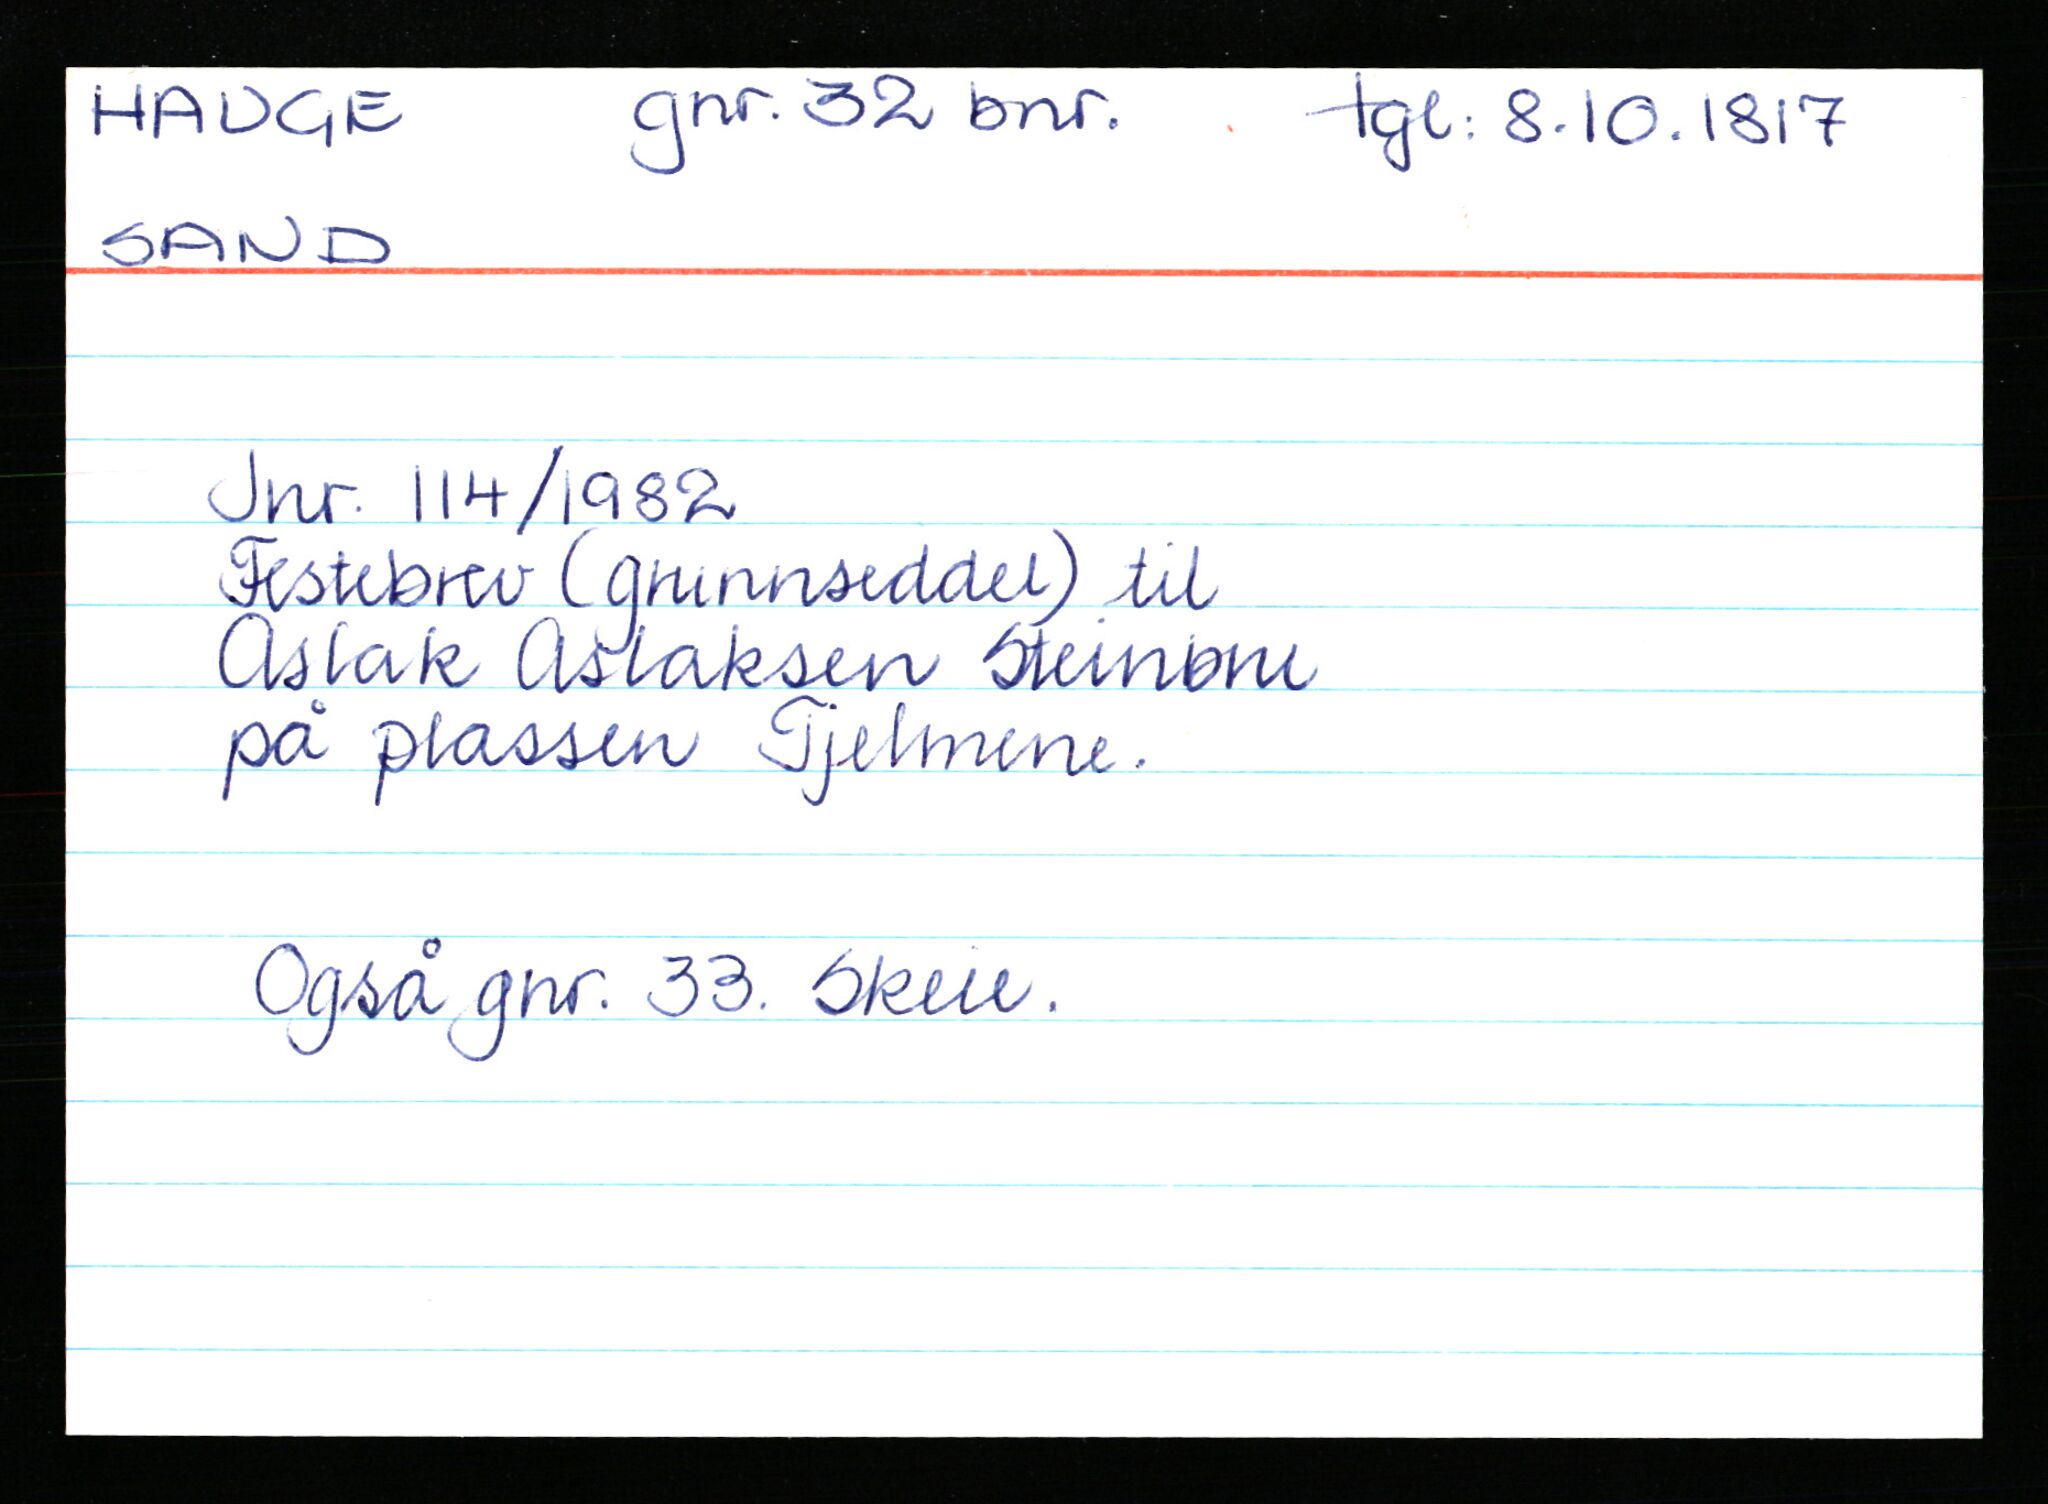 HAUGE gnr. 32 bnr. tgl: 8.10.1817
SAND
Jnr. 114/1982
Festebrev (grunnseddel) til
Aslak Aslaksen Steinbru
på plassen Tjelmene.
Også gnr. 33. Skeie.